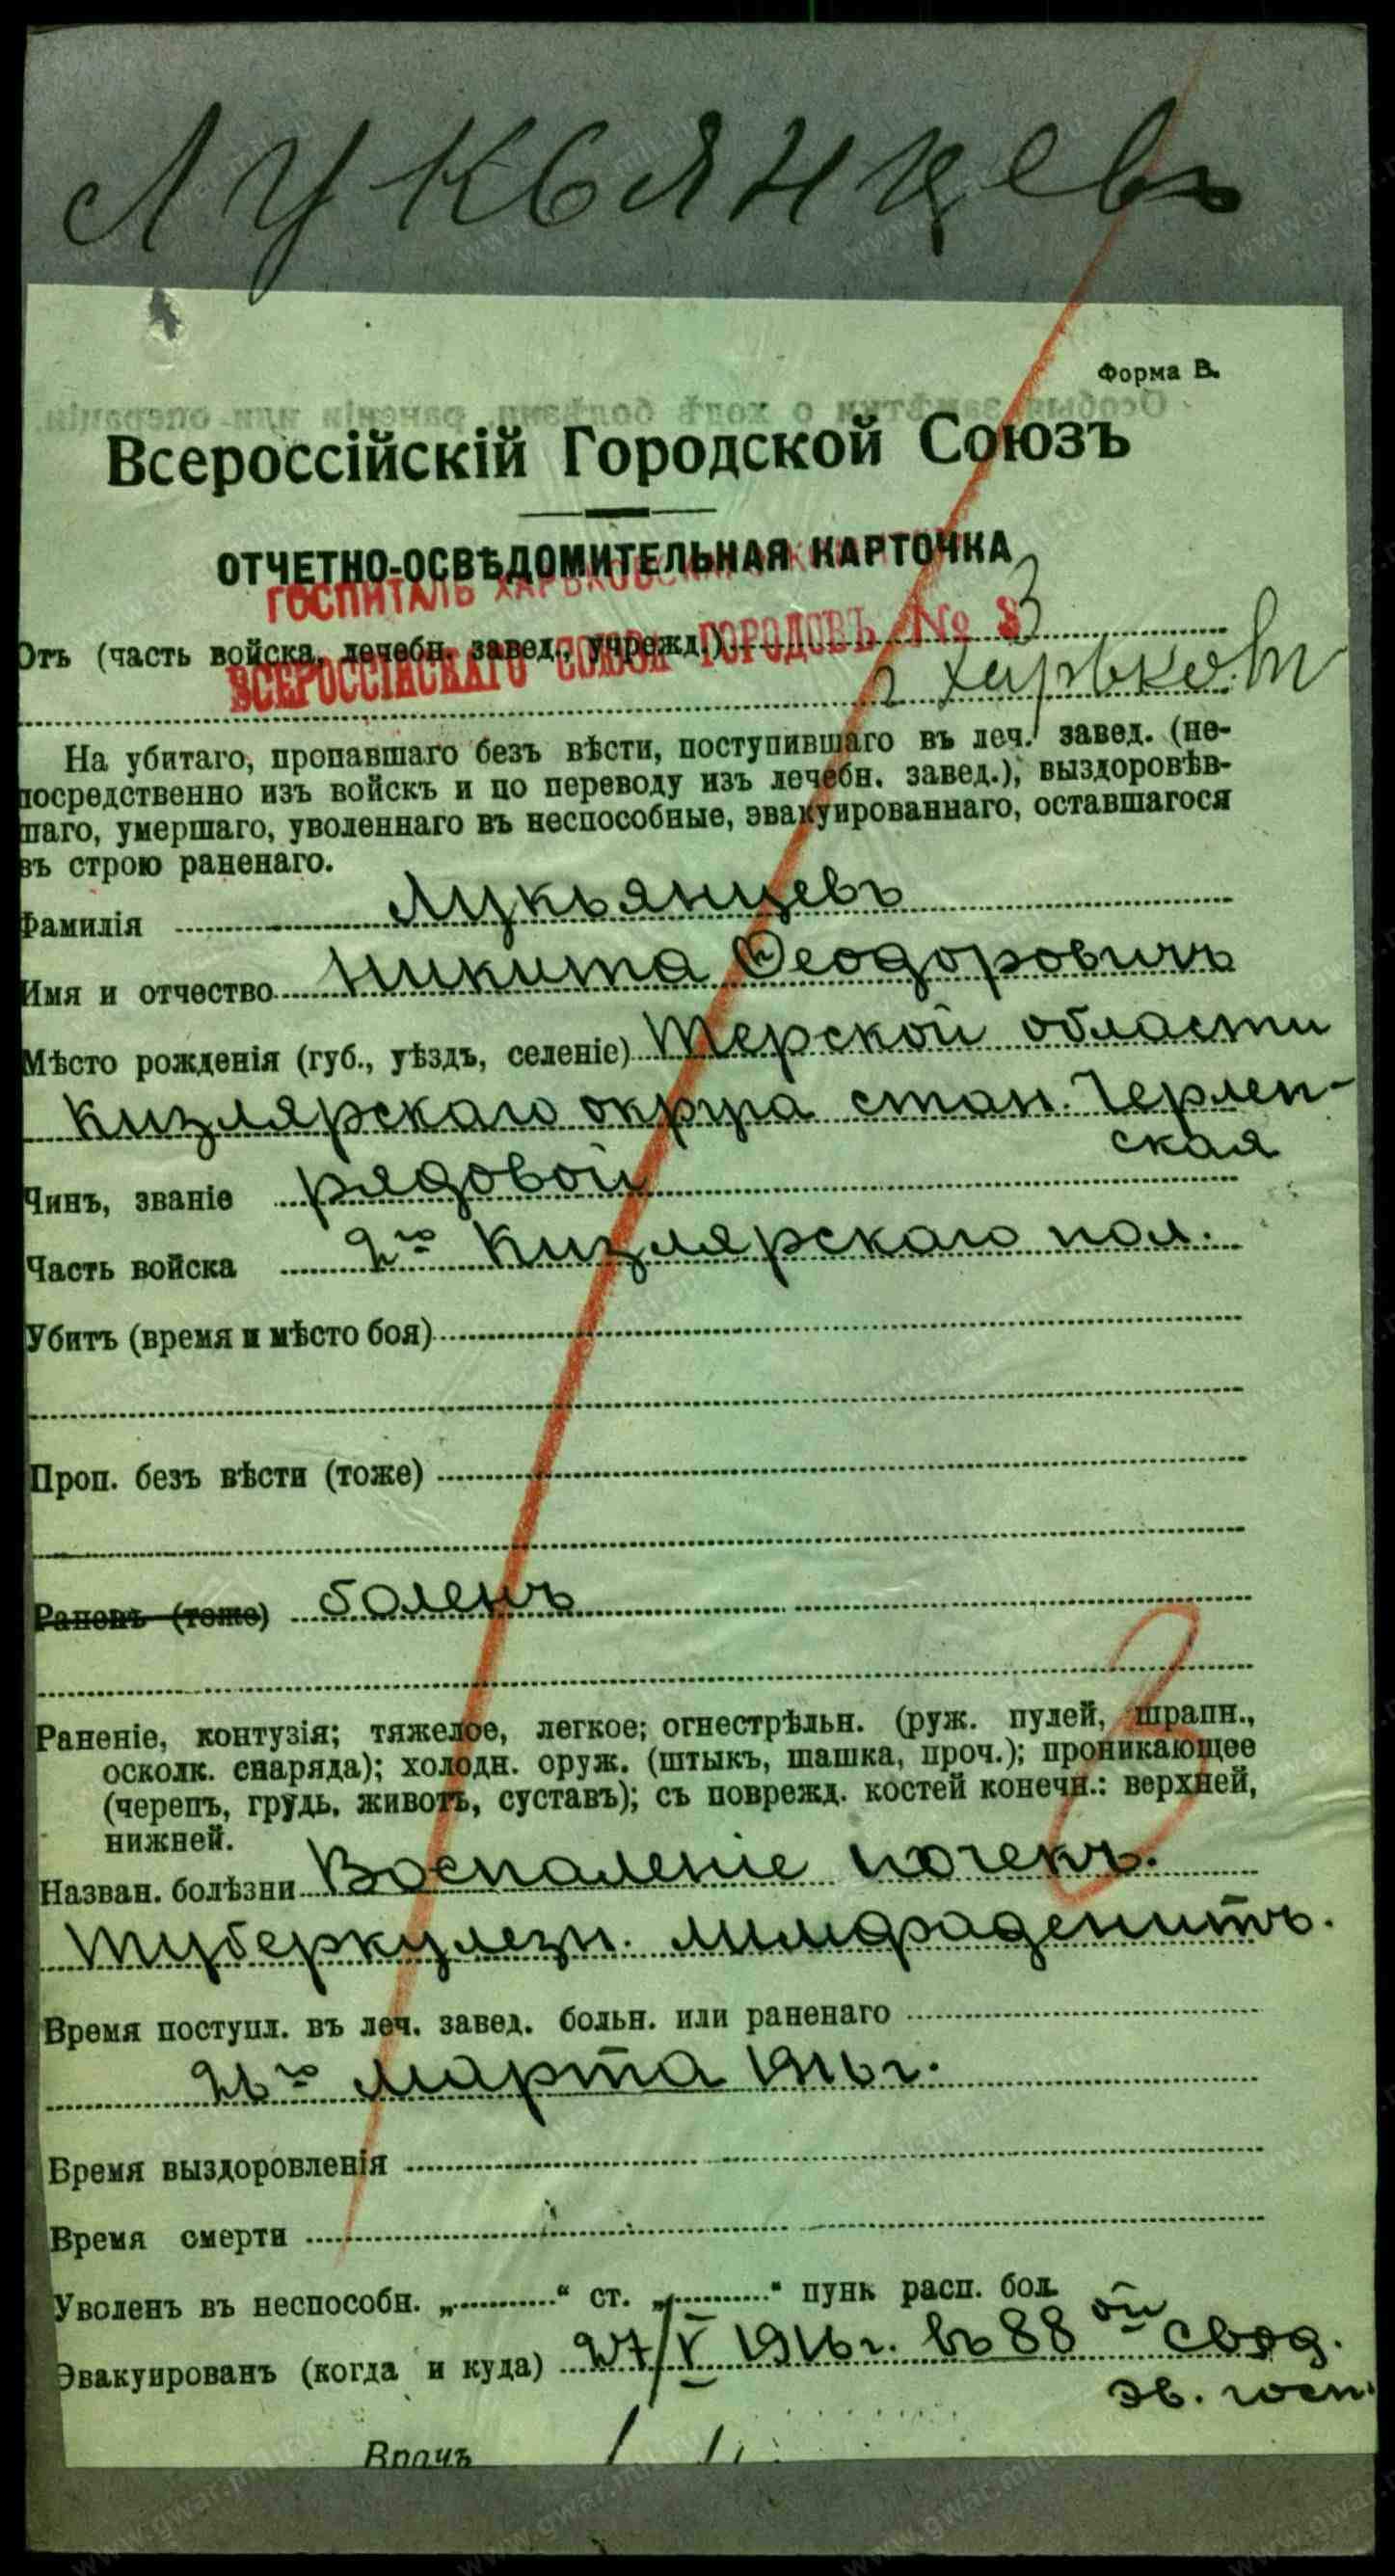 Лукьянцевъ
Форма В.
Всероссійскій Городской Союзъ
ОТЧЕТНО-ОСВѢДОМИТЕЛЬНАЯ КАРТОЧКА
ГОСПИТАЛЬ
Отъ (часть войска, лечебн. завед., учрежд.)
ВСЕРОССІЙСКАГО СОЮЗА ГОРОДОВЪ № 3
г Харьковъ
На убитаго, пропавшаго безъ вѣсти, поступившаго въ леч. завед. (не-
посредственно изъ войскъ и по переводу изъ лечебн. завед.), выздоровѣв-
шаго, умершаго, уволеннаго въ неспособные, эвакуированнаго, оставшагося
въ строю раненаго.
Фамилія Лукьянцевъ
Имя и отчество Никита Ѳеодоровичъ
Мѣсто рожденія (губ., уѣздъ, селеніе) Терской области
Кизлярскаго округа стан. Черлен-
ская
Чинъ, званіе рядовой
Часть войска 2го Кизлярскаго пол.
Убитъ (время и мѣсто боя)
Проп. безъ вѣсти (тоже)
Раненъ (тоже) боленъ
Раненіе, контузія; тяжелое, легкое; огнестрѣльн. (руж. пулей, шрапн.,
осколк. снаряда); холодн. оруж. (штыкъ, шашка, проч.); проникающее
(черепъ, грудь, животъ, суставъ); съ поврежд. костей конечн.: верхней,
нижней.
Назван. болѣзни Воспаленіе почекъ.
Туберкулезн. лимфаденитъ.
Время поступл. въ леч. завед. больн. или раненаго
26го марта 1916 г.
Время выздоровленія
Время смерти
Уволенъ въ неспособн. „ “ ст. „ “ пунк расп. бол.
Эвакуированъ (когда и куда) 27/V 1916 г. въ 88ой свод.
эв. госп.
Врачъ